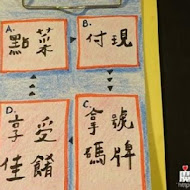 A.
點菜
B.
付現
C.
拿號
碼牌
D.
享受
佳餚